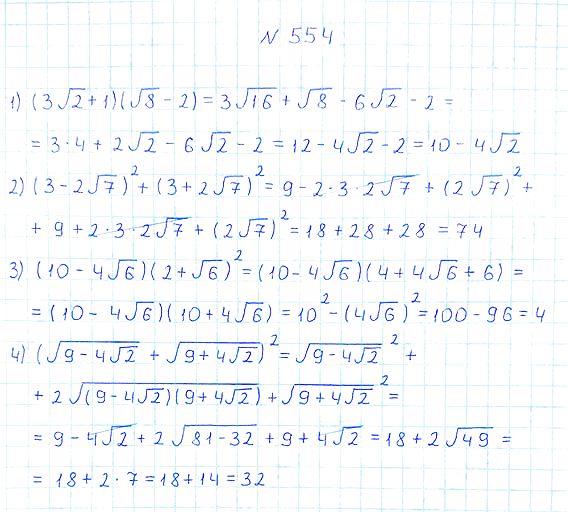 N 554
1) (3√2+1)(√8-2)=3√16+√8-6√2-2=
=3·4+2√2-6√2-2=12-4√2-2=10-4√2
2) (3-2√7)²+(3+2√7)²=9-2·3·2√7+(2√7)²+
+9+2·3·2√7+(2√7)²=18+28+28=74
3) (10-4√6)(2+√6)²=(10-4√6)(4+4√6+6)=
=(10-4√6)(10+4√6)=10²-(4√6)²=100-96=4
4) (√(9-4√2)+√(9+4√2))²=√(9-4√2)²+
+2√((9-4√2)(9+4√2))+√(9+4√2)²=
=9-4√2+2√(81-32)+9+4√2=18+2√49=
=18+2·7=18+14=32